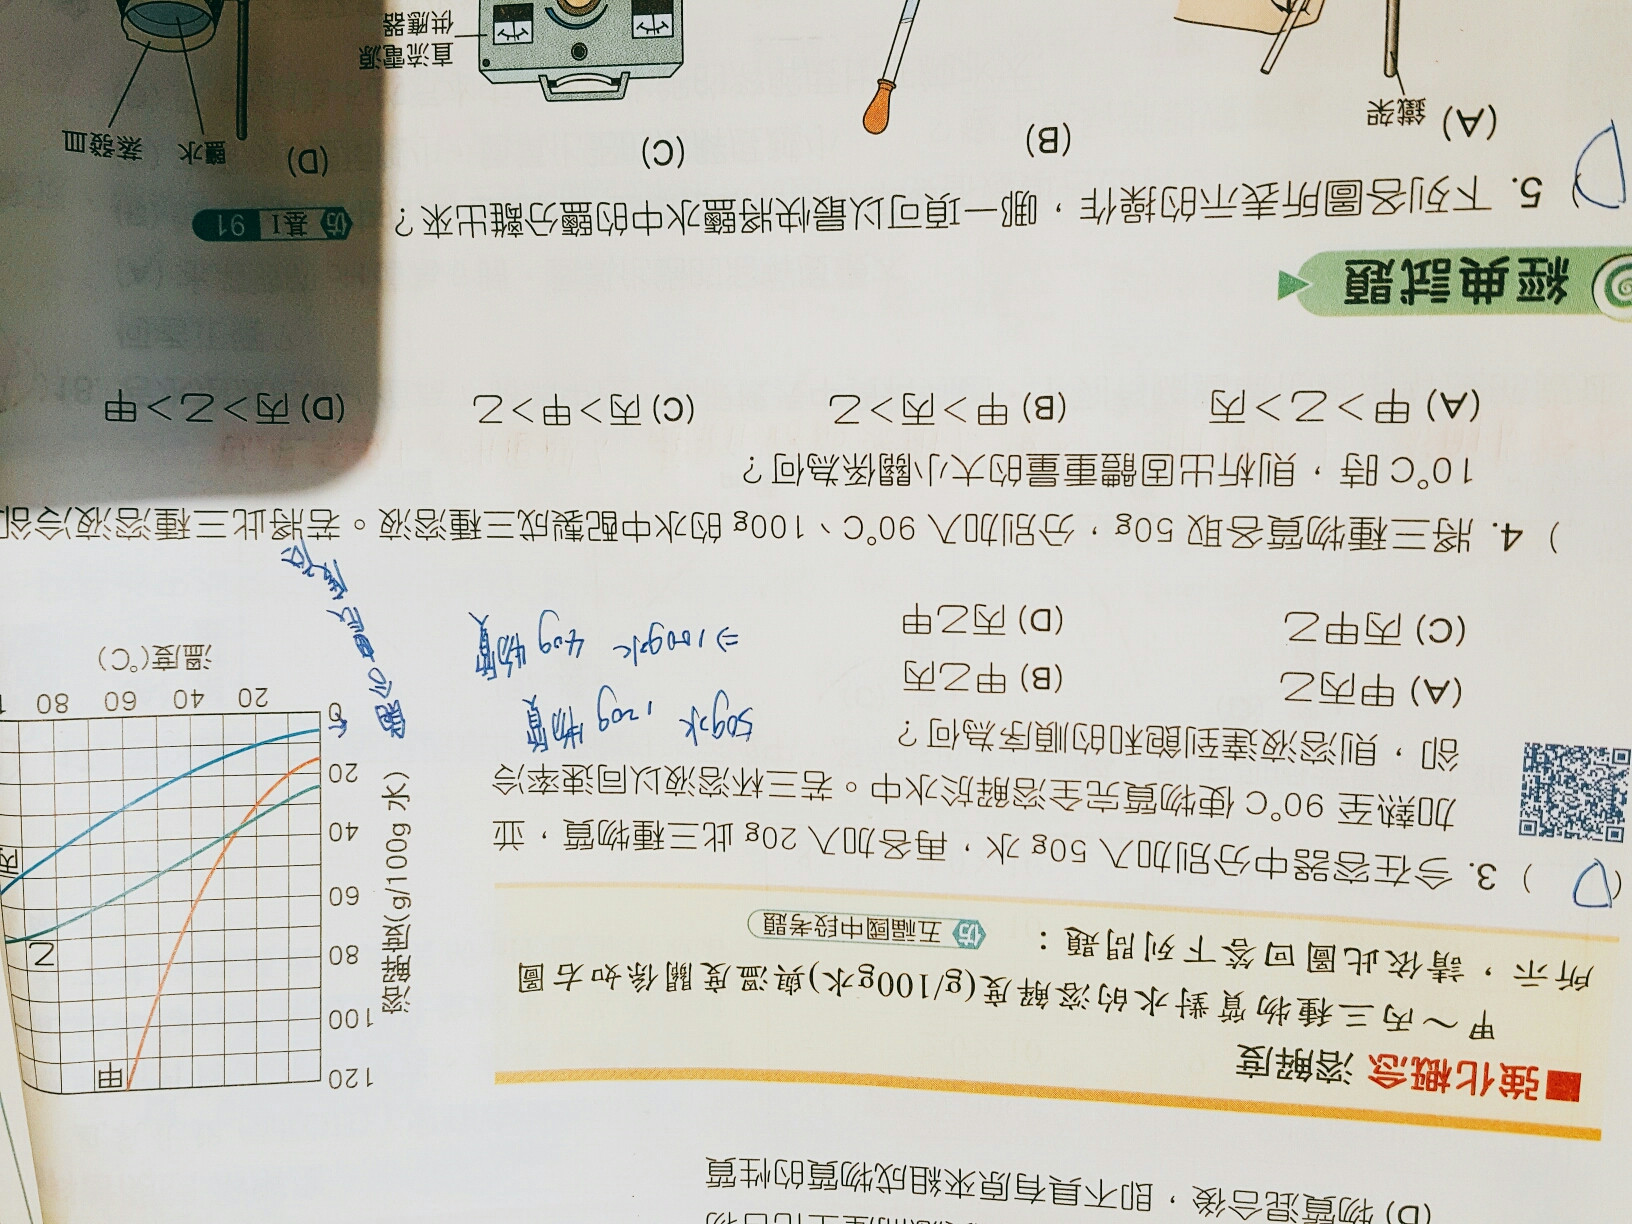 (D) 物質混合後，即不具有原來組成物質的性質
■強化概念 溶解度
甲～丙三種物質對水的溶解度(g/100g水)與溫度關係如右圖
所示，請依此圖回答下列問題：
仿 五福國中段考題
( D ) 3. 今在容器中分別加入 50g 水，再各加入 20g 此三種物質，並
加熱至 90°C 使物質完全溶解於水中。若三杯溶液以同速率冷
卻，則溶液達到飽和的順序為何？
(A) 甲丙乙
(B) 甲乙丙
(C) 丙甲乙
(D) 丙乙甲
50g水，20g物質
⇒100g水 40g物質
溶解度(g/100g 水)
120
100
80
60
40
20
0
20
40
60
80
溫度(°C)
甲
乙
丙
) 4. 將三種物質各取 50g，分別加入 90°C、100g 的水中配製成三種溶液。若將此三種溶液冷卻
10°C 時，則析出固體重量的大小關係為何？
(A) 甲＞乙＞丙
(B) 甲＞丙＞乙
(C) 丙＞甲＞乙
(D) 丙＞乙＞甲
經典試題
D ) 5. 下列各圖所表示的操作，哪一項可以最快將鹽水中的鹽分離出來？
仿 基I 91
(A)
鐵架
(B)
(C)
直流電源
供應器
(D)
鹽水
蒸發皿